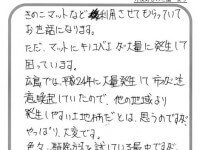 きのこマットなど利用させてもらっていて
お世話になります。
ただ、マットにキノコバエが大量に発生して
困っています。
広島では、平成24年に大量発生して
していたので、他の地域より
発生しやすい土地柄だとは思うのですが
やっぱり大変です。
色々、駆除方法を試している最中ですが、